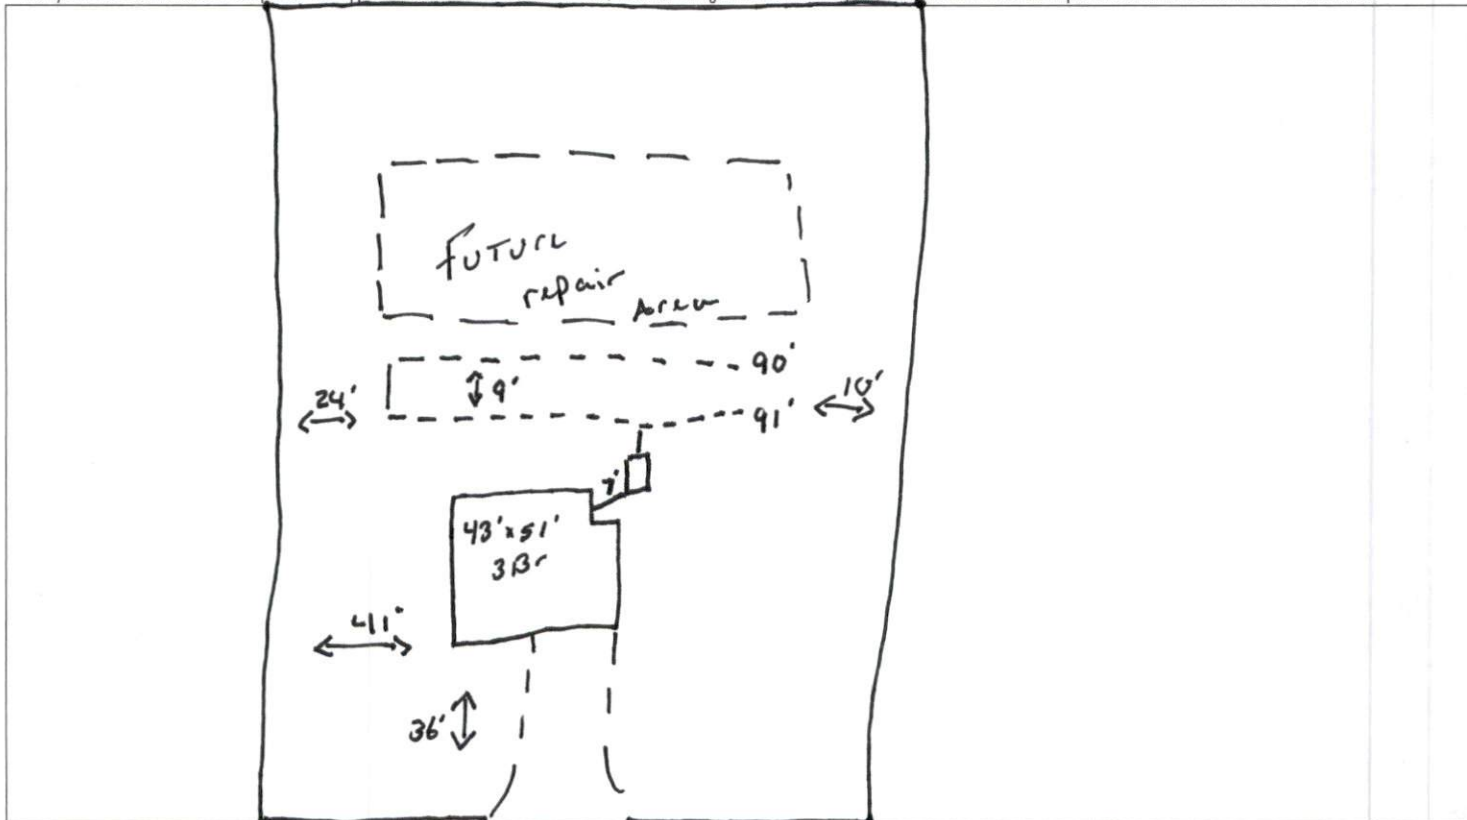 Future
repair Area
90'
9'
24'
10'
91'
7'
43'x51'
3Br
41'
36'